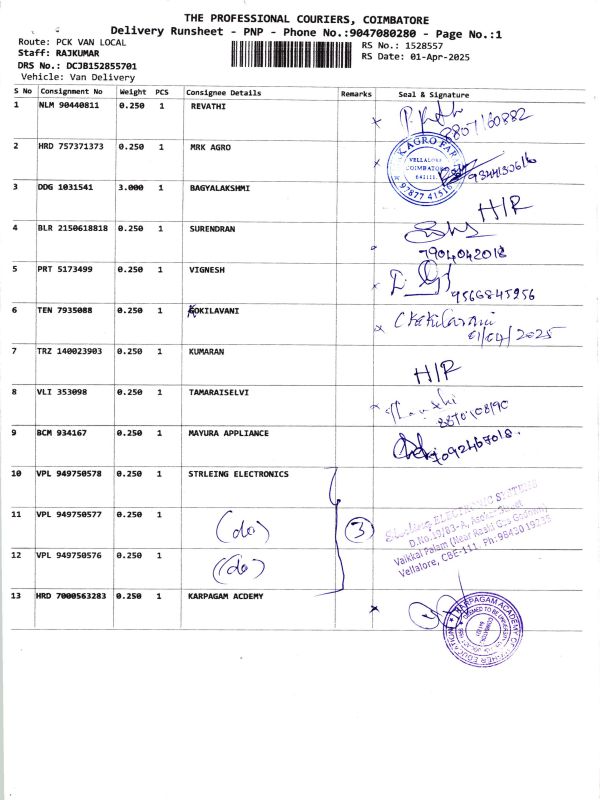 THE PROFESSIONAL COURIERS, COIMBATORE
Delivery Runsheet - PNP - Phone No.:9047080280 - Page No.:1
Route: PCK VAN LOCAL
RS No.: 1528557
Staff: RAJKUMAR
RS Date: 01-Apr-2025
DRS No.: DCJB152855701
Vehicle: Van Delivery
S No Consignment No Weight PCS Consignee Details Remarks Seal & Signature
1 NLM 90440811 0.250 1 REVATHI
8807160882
2 HRD 757371373 0.250 1 MRK AGRO
AGRO FAR
VELLALORE
COIMBATORE
641111
97877 41516
3 DDG 1031541 3.000 1 BAGYALAKSHMI
H/R
4 BLR 2150618818 0.250 1 SURENDRAN
7904042018
5 PRT 5173499 0.250 1 VIGNESH
9566845956
6 TEN 7935088 0.250 1 KOKILAVANI
C Kokilavani
01/04/2025
7 TRZ 140023903 0.250 1 KUMARAN
H/R
8 VLI 353098 0.250 1 TAMARAISELVI
9 BCM 934167 0.250 1 MAYURA APPLIANCE
7092467018.
10 VPL 949750578 0.250 1 STRLEING ELECTRONICS
11 VPL 949750577 0.250 1 (do) 3
Sterling ELECTRONIC SYSTEMS
D.No.19/83-A, Street
Vaikkal Palam (Near Rasii Gas Godown)
Vellalore, CBE-111. Ph: 98430 19235
12 VPL 949750576 0.250 1 (do)
13 HRD 7000563283 0.250 1 KARPAGAM ACDEMY
KARPAGAM ACADEMY OF HIGHER EDUCATION